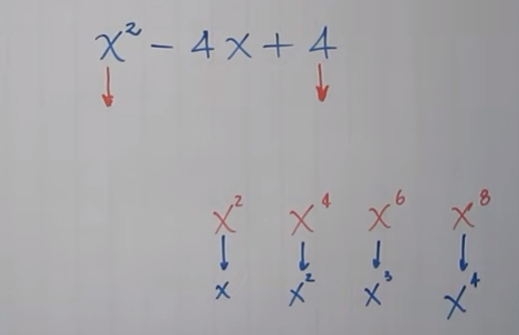 x² - 4x + 4
x² x⁴ x⁶ x⁸
x x² x³ x⁴